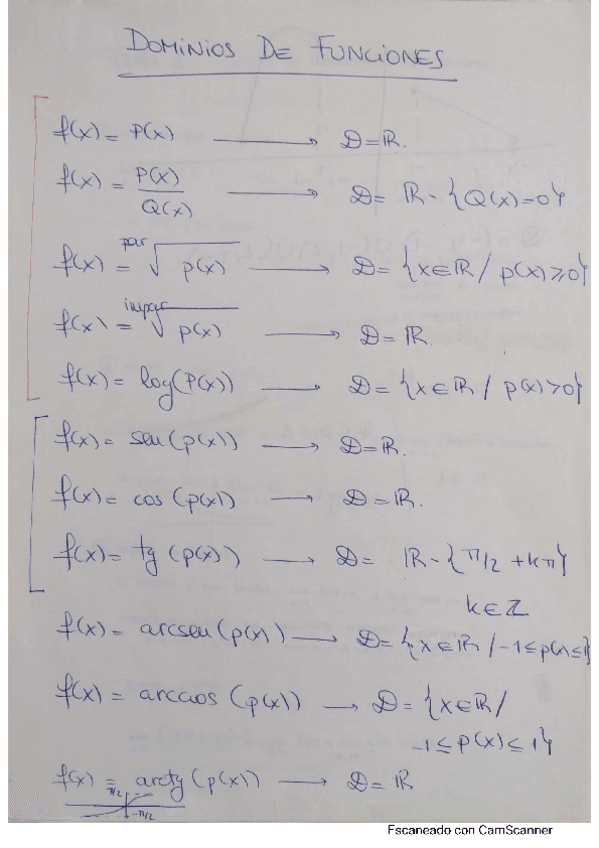 DOMINIOS DE FUNCIONES
f(x) = P(x) → D = ℝ.
f(x) = P(x)/Q(x) → D = ℝ - {Q(x)=0}
f(x) = par√p(x) → D = {x∈ℝ / p(x)≥0}
f(x) = impar√p(x) → D = ℝ.
f(x) = log(P(x)) → D = {x∈ℝ / p(x)>0}
f(x) = sen(p(x)) → D = ℝ.
f(x) = cos(p(x)) → D = ℝ.
f(x) = tg(p(x)) → D = ℝ - {π/2 + kπ}
k∈ℤ
f(x) = arcsen(p(x)) → D = {x∈ℝ / -1≤p(x)≤1}
f(x) = arccos(p(x)) → D = {x∈ℝ /
-1≤p(x)≤1}
f(x) = arctg(p(x)) → D = ℝ
π/2
-π/2
Escaneado con CamScanner